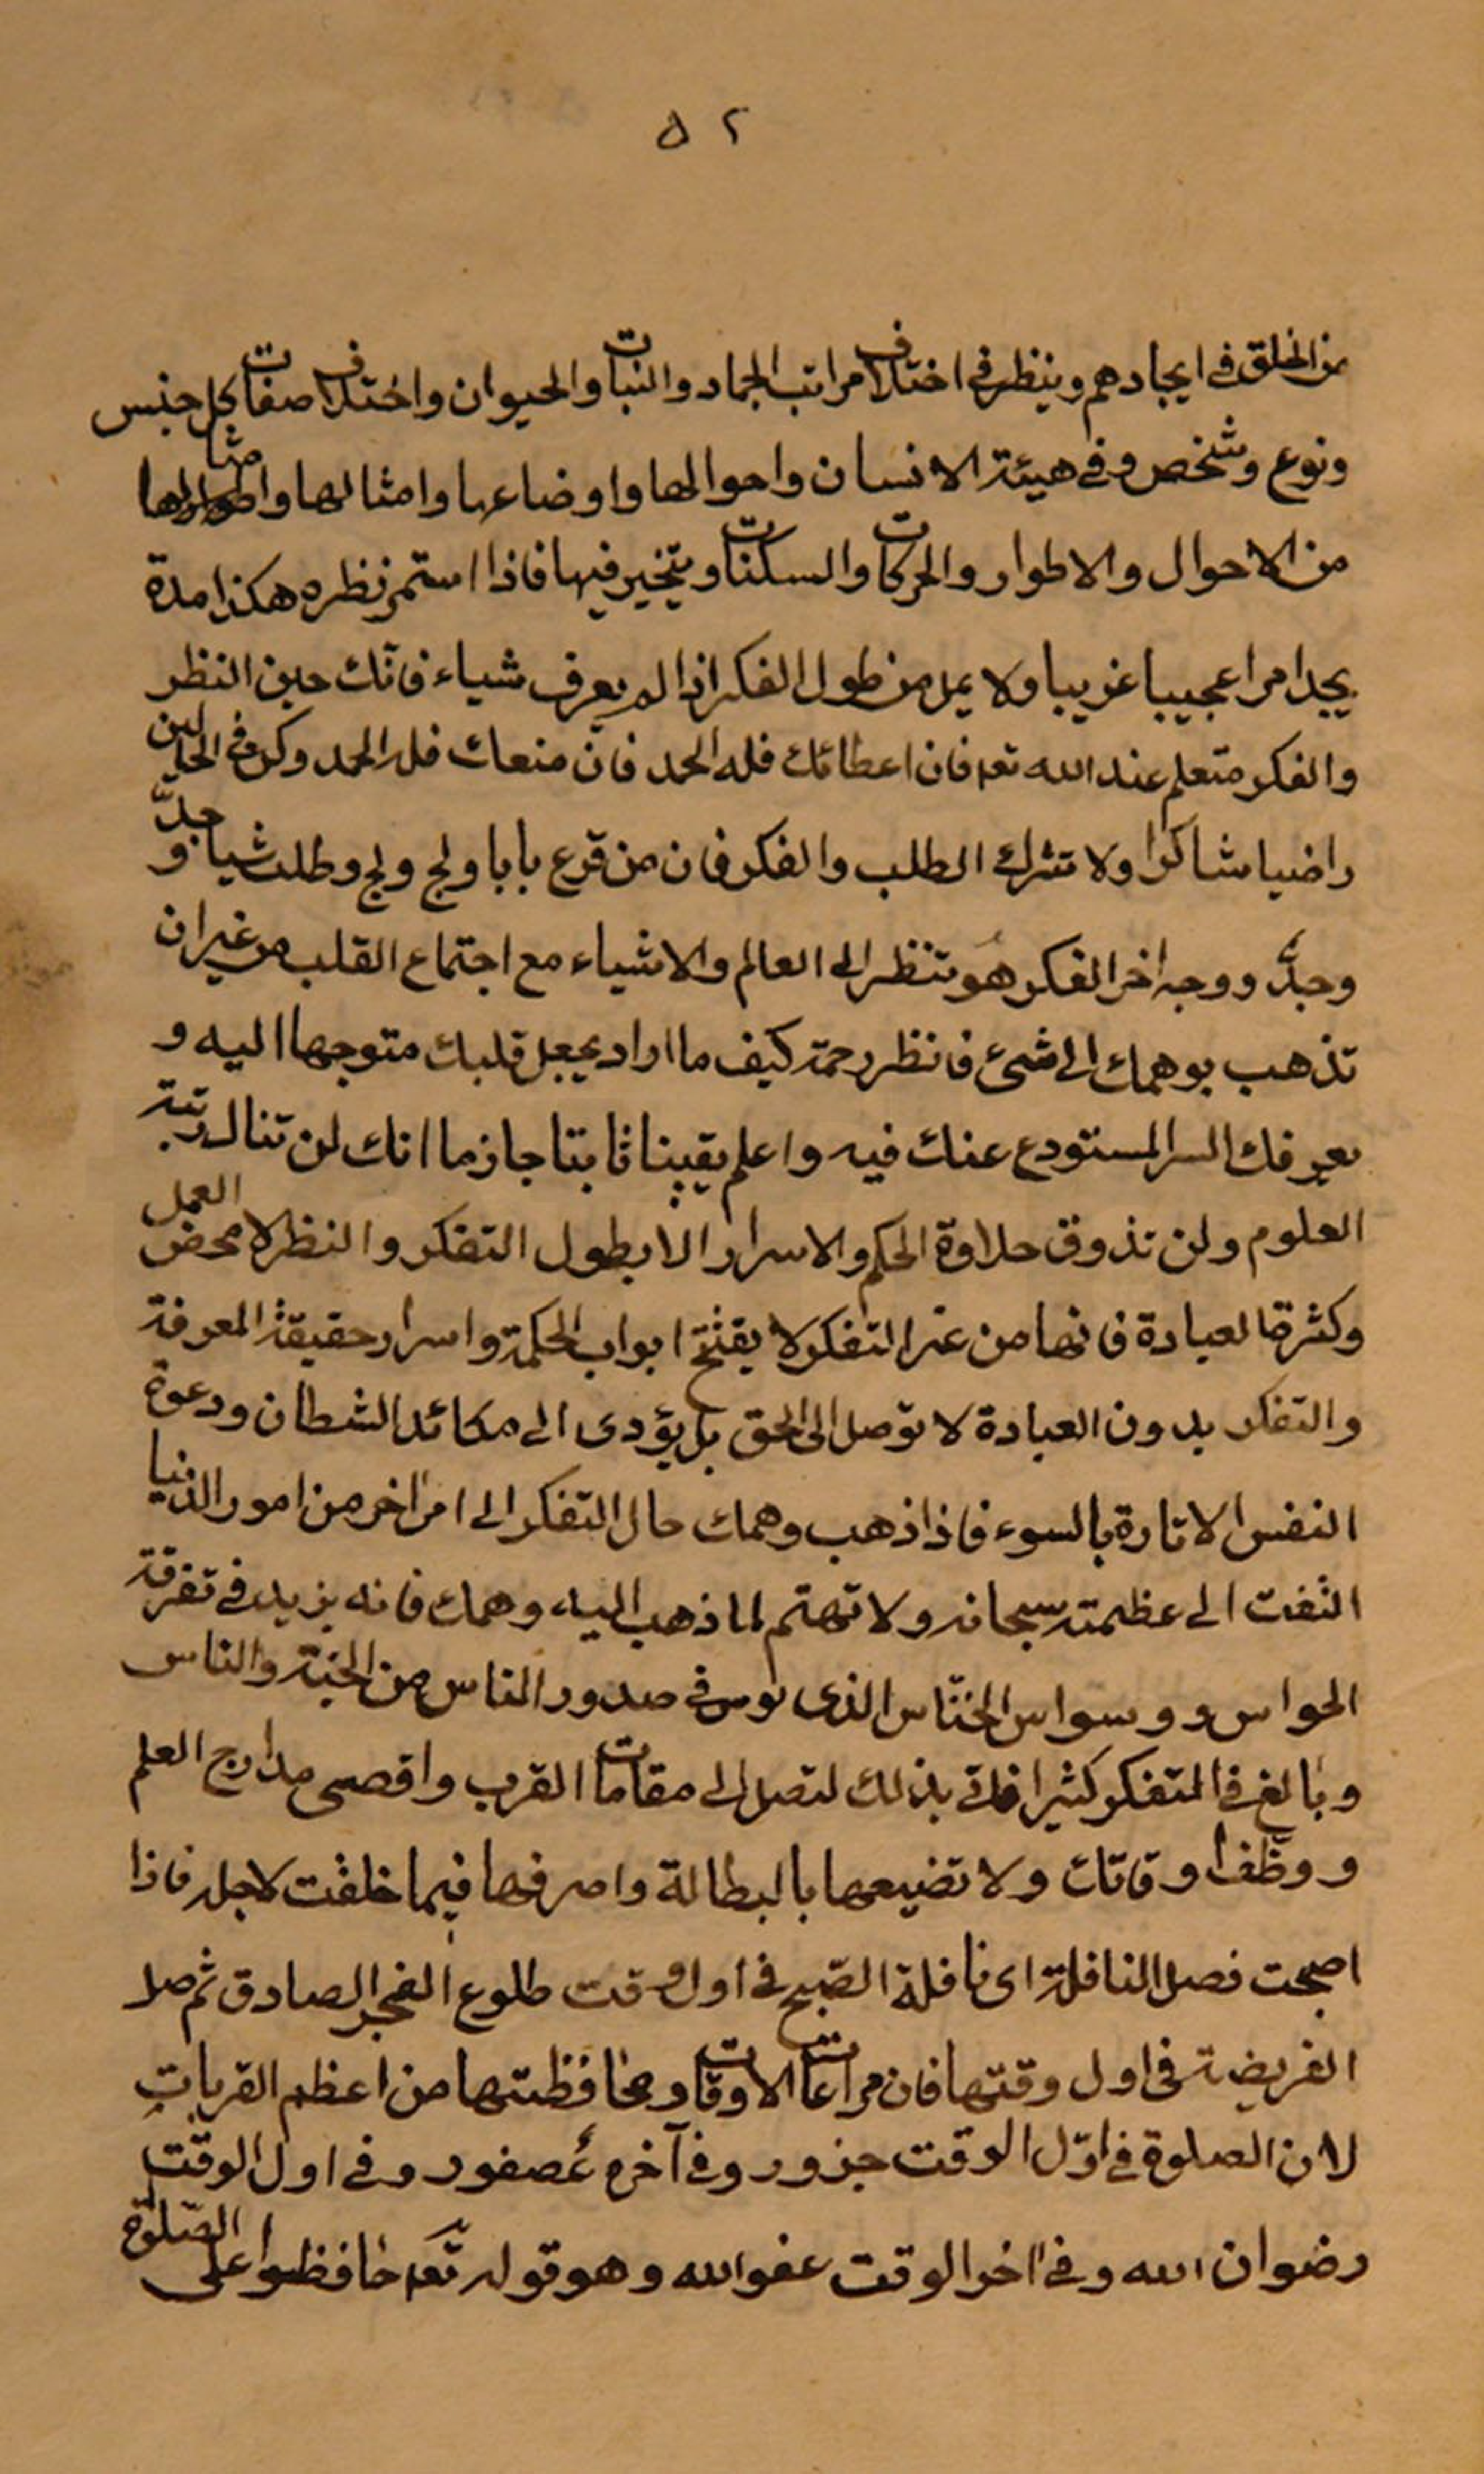 ٥٢
من الخلق في ايجادهم وينظر في اختلاف مراتب الجماد والنبات والحيوان واختلاف صفات كل جنس
ونوع وشخص وفي هيئة الانسان واحوالها واوضاعها وامثالها
من الاحوال والاطوار والحركات والسكنات ويتحير فيها فاذا استمر نظره هكذا مدة
يجد امرا عجيبا غريبا ولا يمل من طول الفكر اذا لم يعرف شياء فانّك حين النظر
والفكر متعلم عند الله تعه فان اعطائك فله الحمد فان منعك فله الحمد وكن في الحالين
راضيا شاكرا ولا تترك الطلب والفكر فان من قرع بابا ولج ولج وطلب شيا جدَّ و
وجدَّ ووجه اخر الفكر هو تنظر الى العالم والاشياء مع اجتماع القلب من غير ان
تذهب بوهمك الى شئ فانظر رحمة كيف ما اراد يجعل قلبك متوجها اليه و
يعرفك السر المستودع عنك فيه واعلم يقينا ثابتا جازما انك لن تنال رتبة
العلوم ولن تذوق حلاوة الحكم والاسرار الا بطول التفكر والنظر لا محض العمل
وكثرة العبادة فانها من غير التفكر لا يفتح ابواب الحكمة واسرار حقيقة المعرفة
والتفكر بدون العبادة لا توصل الى الحق بل يؤدى الى مكائد الشطان ودعوة
النفس الامارة بالسوء فاذا ذهب وهمك حال التفكر الى امر اخر من امور الدنيا
التفت الى عظمته سبحانه ولا تهتم لما ذهب اليه وهمك فانه يزيد في تفرقة
الحواس ووسواس الخنّاس الذى يوس في صدور الناس من الجنة والناس
وبالغ في التفكر كثيرا بذلك لتصل الى مقامات القرب واقصى مدارج العلم
ووظّف اوقاتك ولا تضيعها بالبطالة واصرفها فيما خلقت لاجله فاذا
اصبحت فصل النافلة اى نافلة الصّبح في اول وقت طلوع الفجر الصادق ثم صل
الفريضة في اول وقتها فان مراعات الاوقات ومحافظتها من اعظم القربات
لان الصلوة في اوّل الوقت جزور وفي آخره عُصفور وفي اول الوقت
رضوان الله وفي اخر الوقت عفو الله وهو قوله تعه حافظوا على الصّلوة